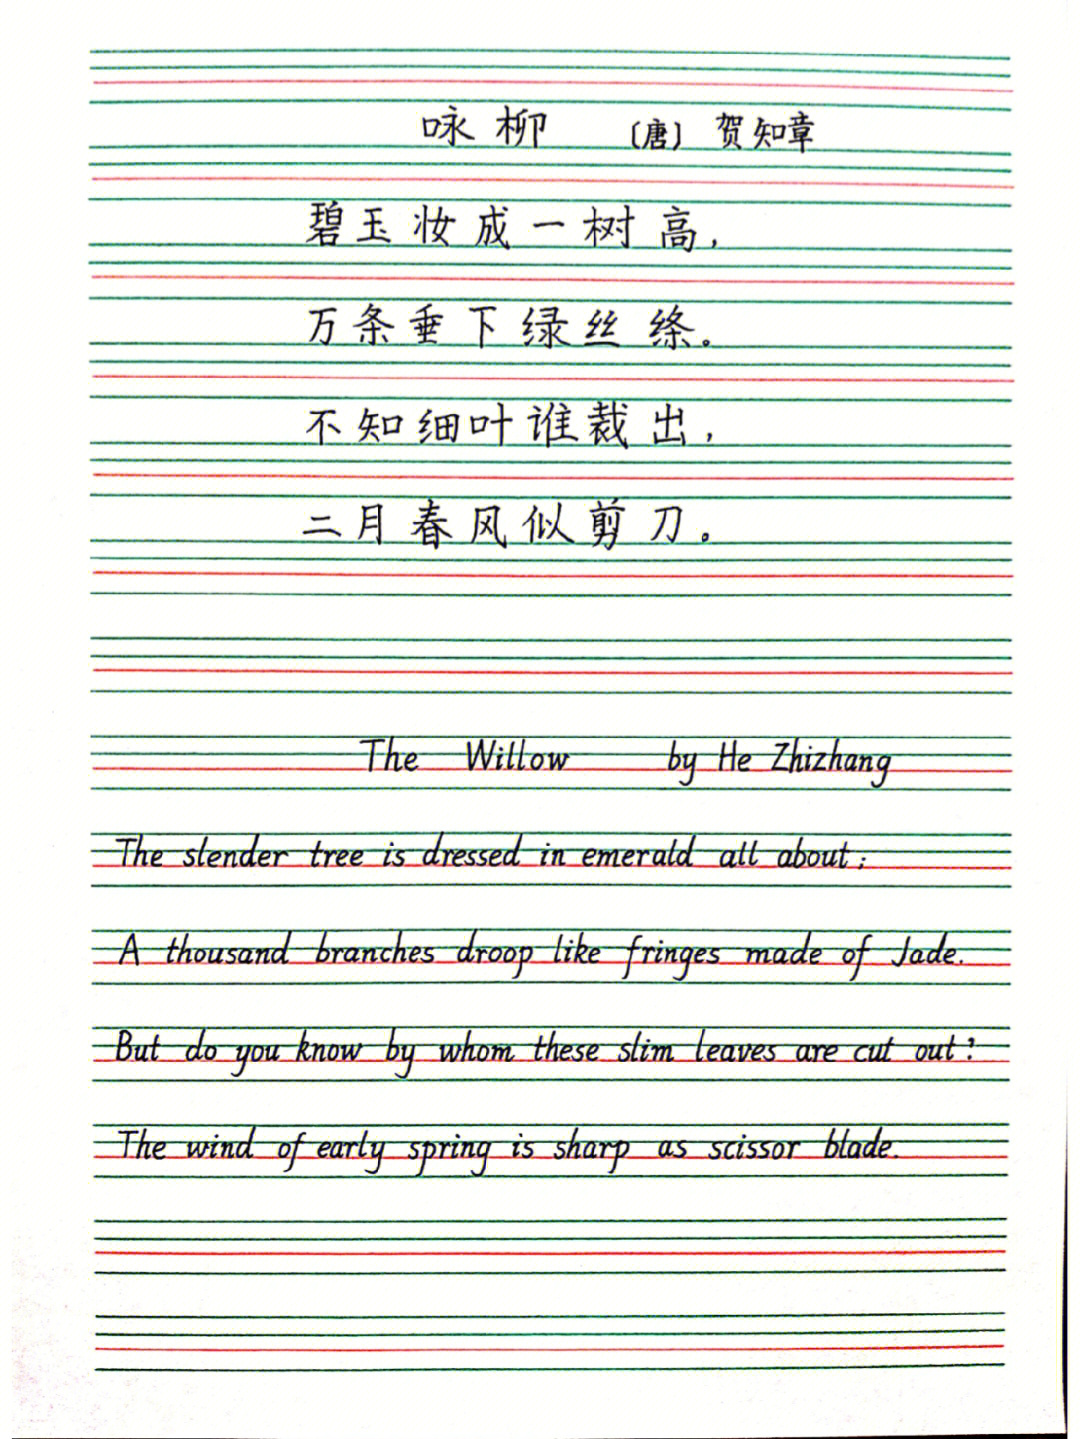 咏柳 〔唐〕 贺知章
碧玉妆成一树高，
万条垂下绿丝绦。
不知细叶谁裁出，
二月春风似剪刀。
The Willow by He Zhizhang
The slender tree is dressed in emerald all about;
A thousand branches droop like fringes made of Jade.
But do you know by whom these slim leaves are cut out?
The wind of early spring is sharp as scissor blade.